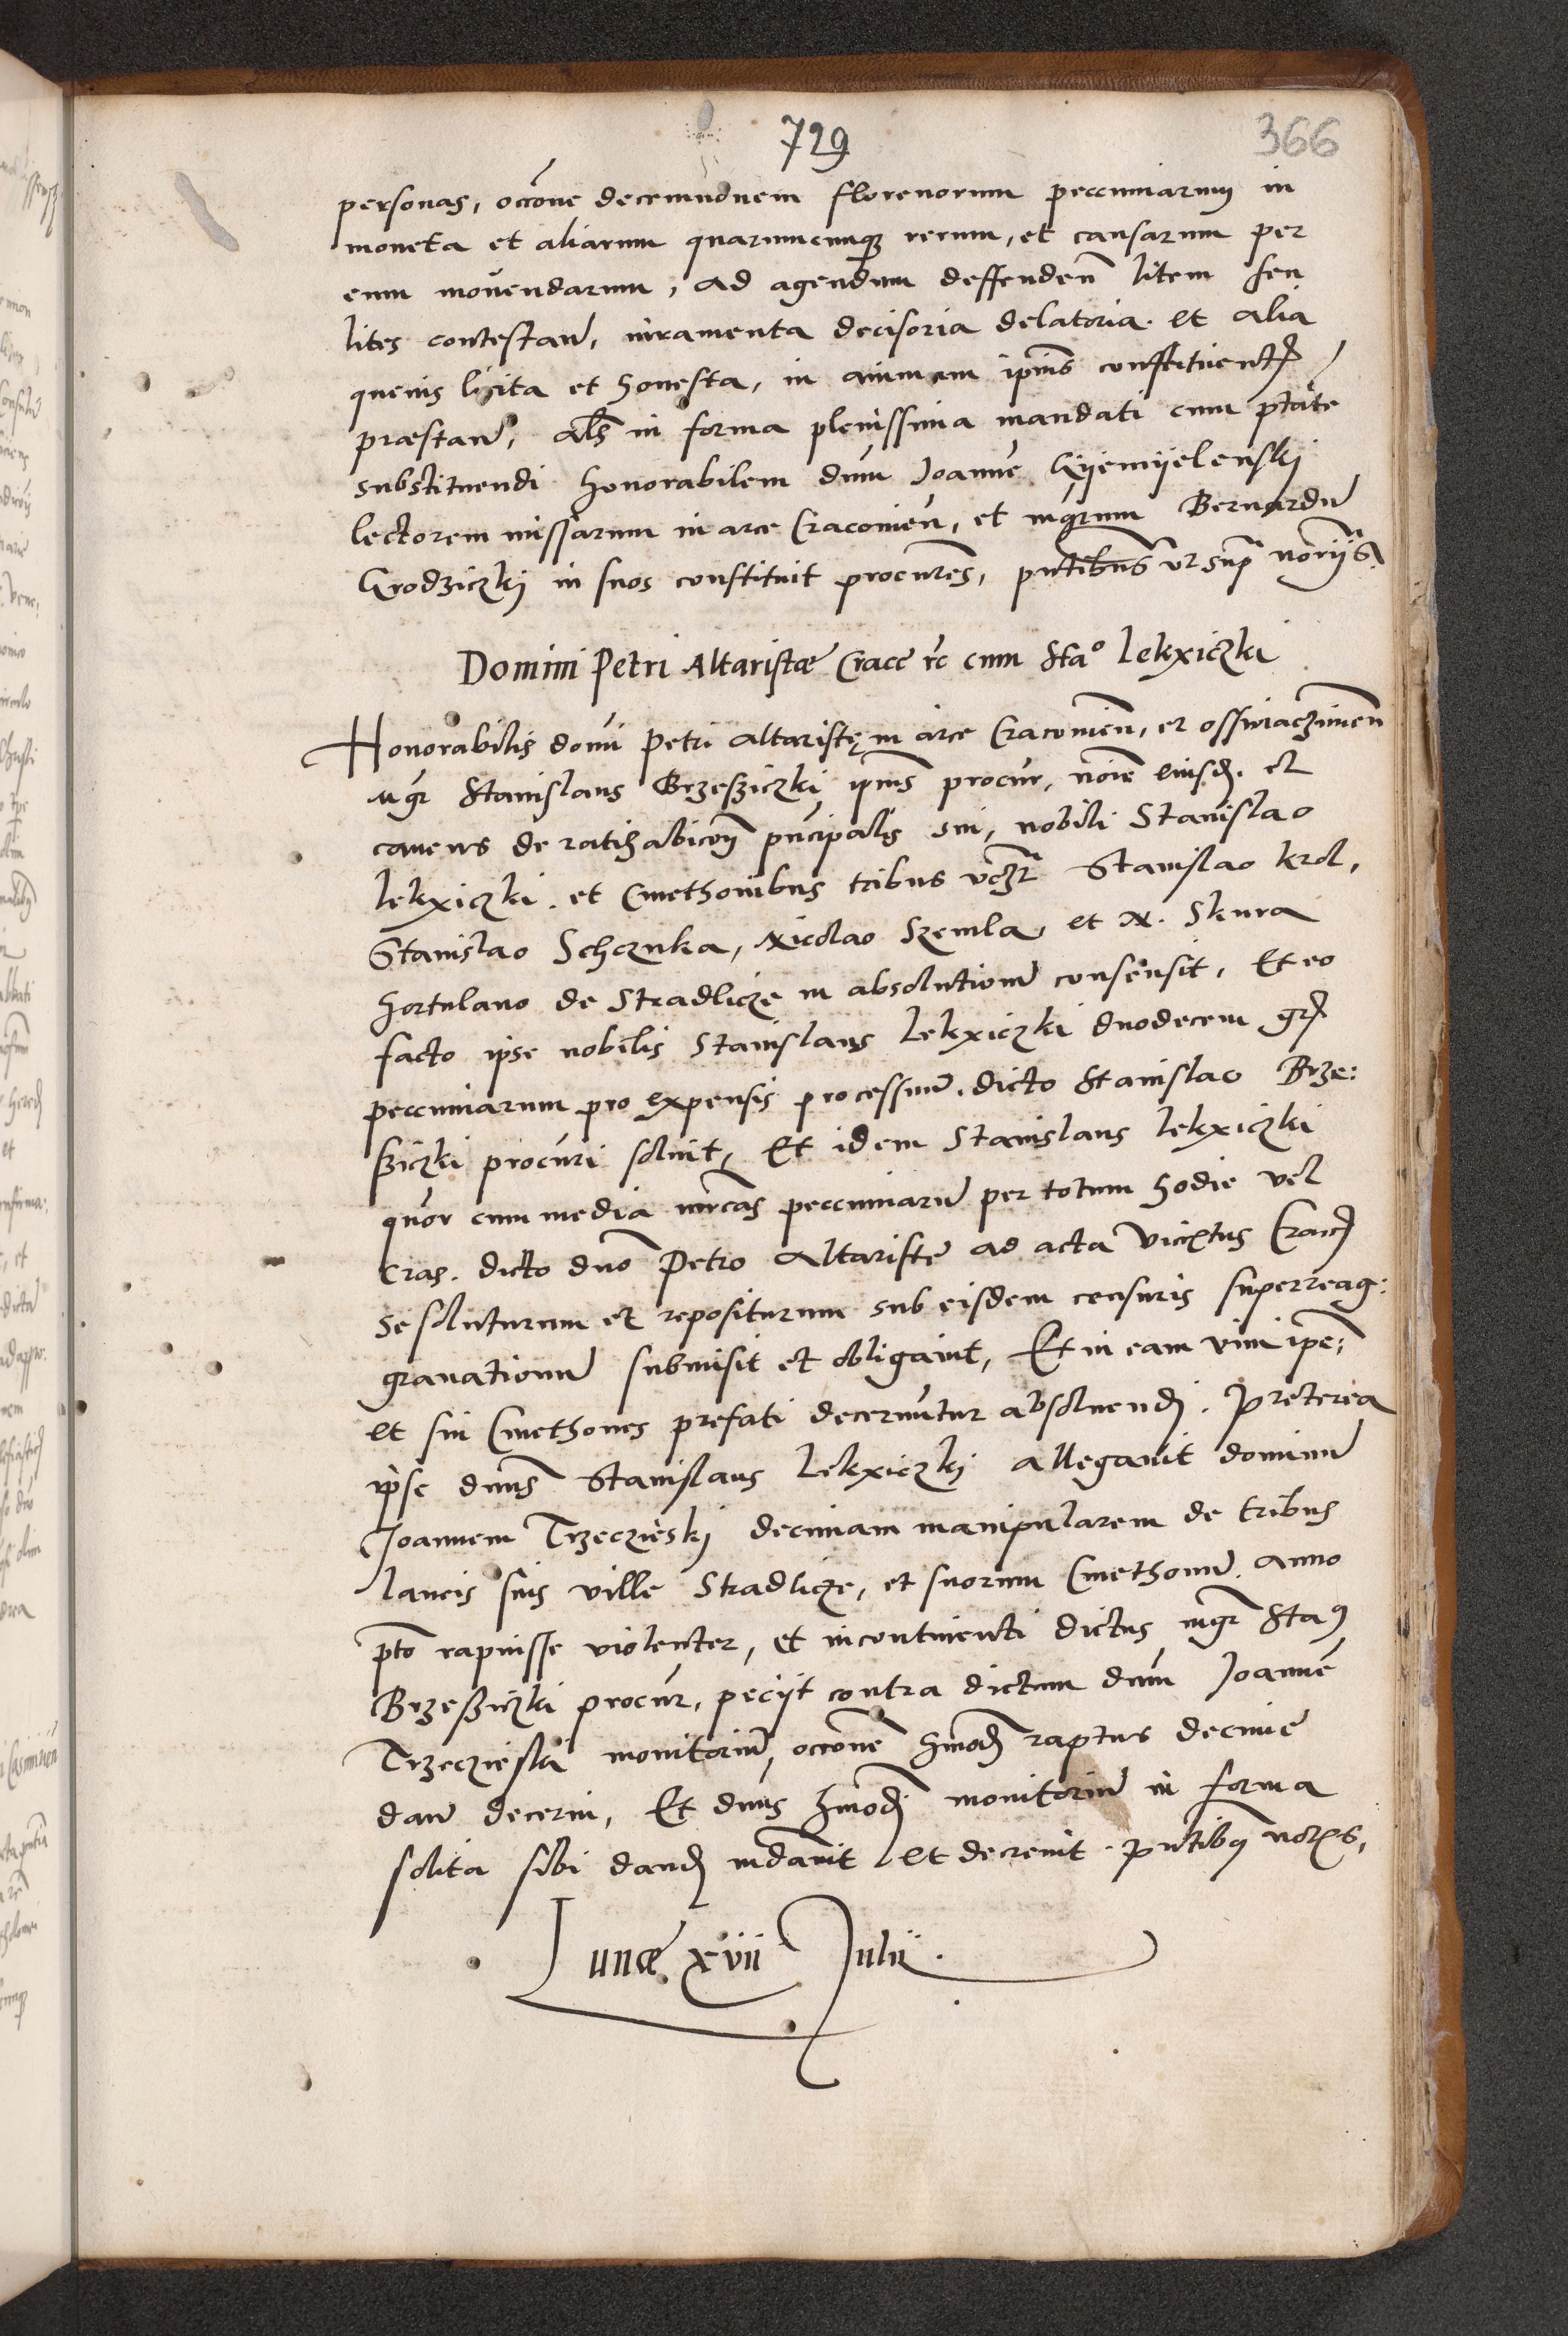 729
366
personas, occone decemnovem florenorum peccuniarum in
moneta et aliarum quarumcunq rerum, et causarum per
eum movendarum, ad agendum deffenden litem seu
lites contestan, iuramenta decisoria delatoria. et alia
quevis licita et honesta, in animam ipius constituent
præstan, als in forma plenissima mandati cum ptate
substituendi honorabilem dnum Joanne Gyemyelenskj
lectorem missarum in arce Cracovien, et mgrum Bernardu
Grodziczkj in suos constituit procures, pntibus ut sup noriis.
Domini Petri Altaristæ Cracc rc cum Stao Lekxiczki
Honorabilis domi Petri altariste in arce Cracovien, et osswiaczimen
mgr Stanislaus Brzesziczki ipius procur, noie eiusd. et
cavens de ratihabicoe pncipalis sui, nobili Stanislao
Lekxiczki. et Cmethonibus tribus vdzt Stanislao krol,
Stanislao Schcznka, Nicolao Szemla, et N. Skura
hortulano de Stradlicze in absolutione consensit, Et eo
facto ipse nobilis Stanislaus Lekxiczki duodecem gr
peccuniarum pro expensis processuu. dicto Stanislao Brze:
sziczki procuri solvit, Et idem Stanislaus Lekxiczki
quor cum media mrcas peccuniaru per totum hodie vel
cras. dicto dno Petro Altariste ad acta vicrtus Cracc
se soluturum et repositurum sub eisdem censuris superreag:
gravationu submisit et obligavit, Et in eam vim ipe;
et sui Cmethones prefati decernutur absolvendj. Preterea
ipse dnus Stanislaus Lekxiczkj allegavit dominu
Joannem Trzeczieskj decimam manipularem de tribus
laneis suis ville Stradlicze, et suorum Cmethonu. anno
pto rapuisse violenter, et incontinenti dictus mgr Sta9
Brzesziczki procur, peciit contra dictum dnum Joanne
Trzeczieski monitoriu, occone hmodj raptus decime
dari decerni, Et dnus hmodj monitoriu in forma
solita sibi dandj mdavit et decrevit. pntibus notis,
Lunæ xvii Julii.